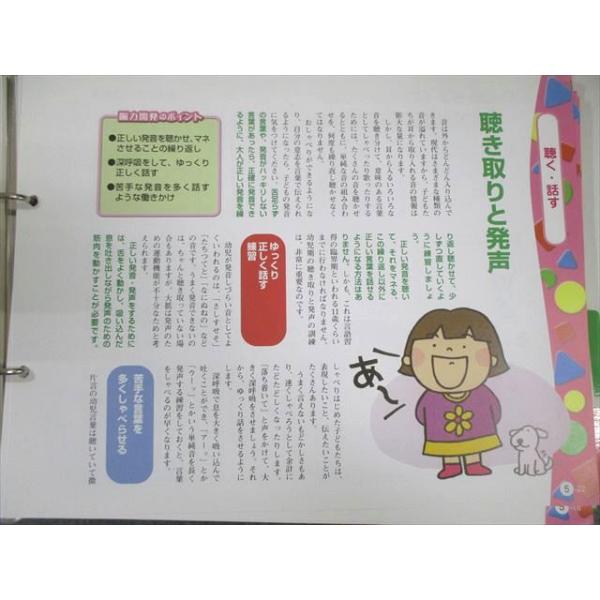 聴く・話す
聴き取りと発声
脳力開発のポイント
●正しい発音を聴かせ、マネ
させることの繰り返し
●深呼吸をして、ゆっくり
正しく話す
●苦手な発音を多く話す
ような働きかけ
音は外からどんどん入り込んで
きます。現代はさまざまな種類の
音が溢れていますから、子どもた
ちが耳から取り入れる音の情報は
膨大な量になります。
しかし、耳から入るいろいろな
音を聴き分け、意味のある言葉
としてしゃべったり歌ったりする
ためには、たくさんの音を聴かせ
るとともに、単純な音の組み合わ
せを、何度も繰り返し聴かせなく
てはなりません。
おしゃべりができるようにな
り、自分の意志を言葉で伝えられ
るようになったら、子どもの発音
に気をつけてください。舌足らず
の言葉や、発音がハッキリしない
言葉があったら、正確に発音でき
るように、大人が正しい発音を繰
り返し聴かせて、少
しずつ直していくよ
うに練習しましょ
う。
正しい発音を聴い
て、それをマネる、
この繰り返し以外に
正しい言葉を話せる
ようになる方法はあ
りません。しかも、これは言語習
得の臨界期といわれる11歳くらい
までに行わなければなりません。
幼児期の聴き取りと発声の訓練
は、非常に重要なのです。
ゆっくり
正しく話す
練習
幼児が発音しづらい音としてよ
くいわれるのは、「さしすせそ」
「たちつてと」「なにぬねの」など
の音です。うまく発音できないの
は、ちゃんと聴き取っていない場
合もありますが、大抵は発声のた
めの運動機能が不十分なためと考
えられます。
正しい発音・発声をするために
は、舌をよく動かし、吸い込んだ
息を吐き出しながら発声のための
筋肉を動かすことが必要です。
あ〜
しゃべりはじめた子どもたちは、
表現したいこと、伝えたいことが
たくさんあります。
うまく言えないもどかしさもあ
り、速くしゃべろうとして余計に
たどたどしくなったりします。
「落ち着いて」と声をかけて、大
きく深呼吸をさせましょう。それ
から、ゆっくり話をさせるように
します。
深呼吸で息を大きく吸い込んで
吐くことができ、「アーッ」とか
「ウーッ」とかいう単純音を長く
発声する練習をしておくと、言葉
をしゃべるのが早くなります。
苦手な言葉を
多くしゃべらせる
片言の幼児言葉は聴いていて微
5
5